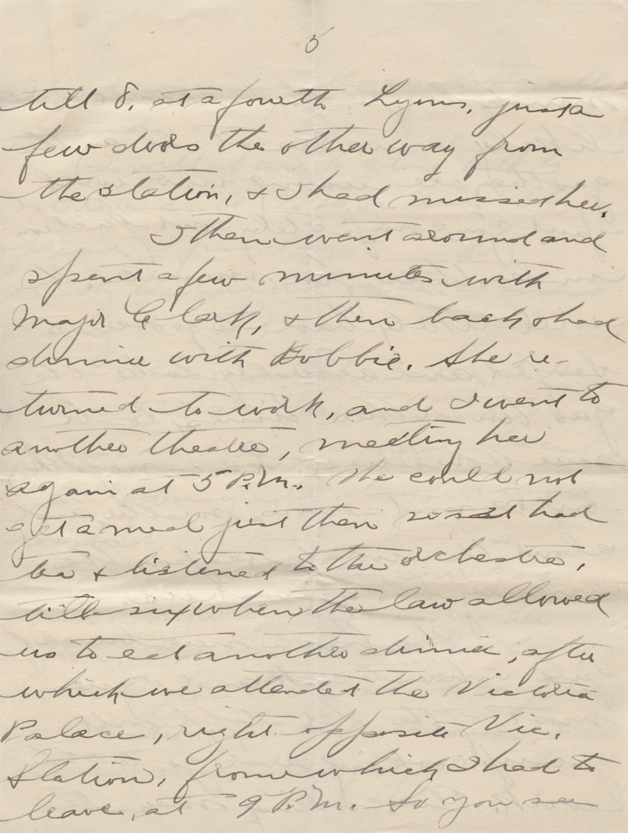 5
till 8. at a fourth Lyons, just a
few doors the other way from
the station, & I had missed her.
I then went around and
spent a few minutes with
Major Clark, & then back & had
dinner with Bobbie. She re-
turned to work, and I went to
another theatre, meeting her
again at 5 P.M. We could not
get a meal just then so sat had
tea & listened to the orchestra,
till six when the law allowed
us to eat another dinner, after
which we attended the Victoria
Palace, right opposite Vic.
Station, from which I had to
leave, at 9 P.M. So you see